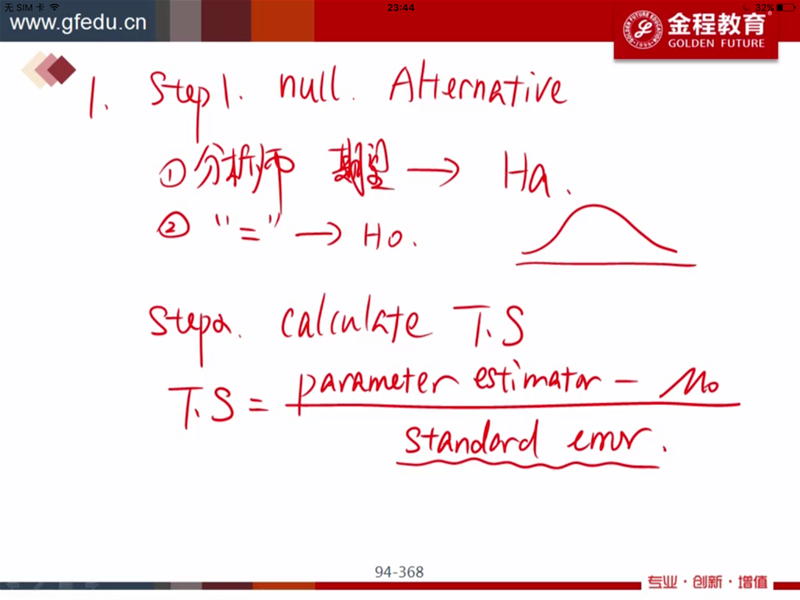 无 SIM 卡 23:44 32%
www.gfedu.cn
金程教育
GOLDEN FUTURE
1. Step1. null. Alternative
① 分析师 期望 → Ha.
② "=" → H0.
Step2. calculate T.S
T.S = parameter estimator - μ0
standard error.
94-368
专业·创新·增值